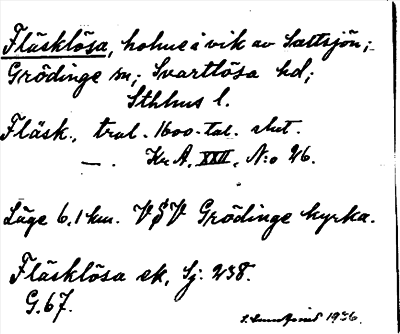 Fläsklösa, holme i vik av Sættsjön;
Grödinge sn; Svartlösa hd;
Sthlms l.
Fläsk., trol. 1600-tal. slut.
— . Kr. A. XXII, N:o 26.
Läge 6,1 km. VSV Grödinge kyrka.
Fläsklösa ek, Sj: 238.
G. 67.
1936.